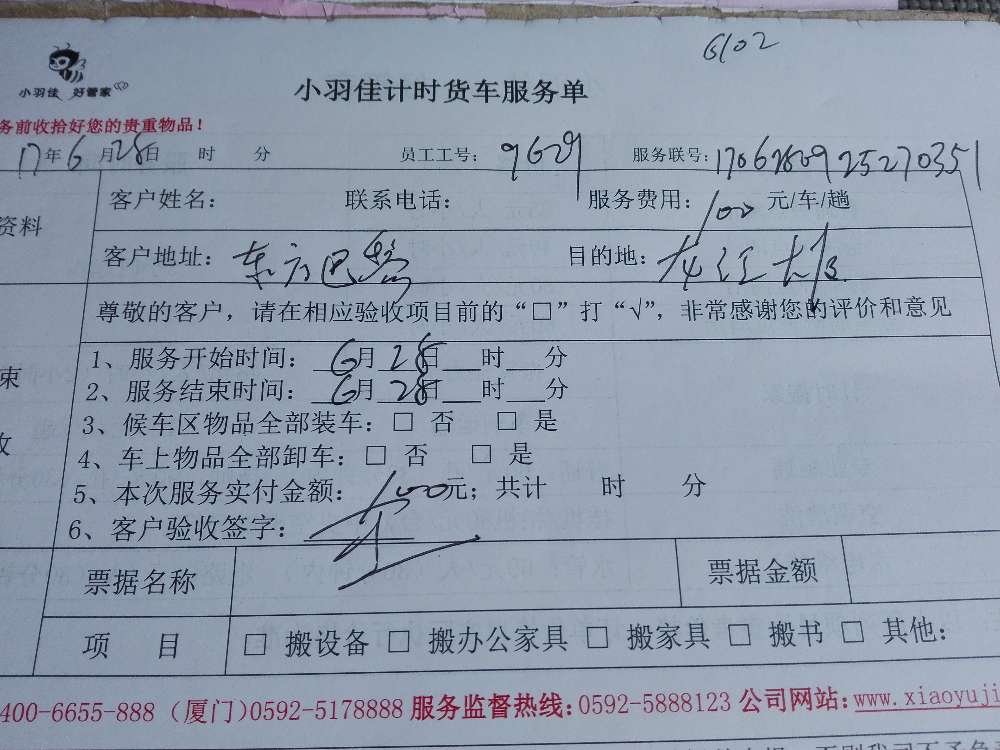 6102
小羽佳 好管家
小羽佳计时货车服务单
务前收拾好您的贵重物品！
17年6月28日 时 分 员工工号：9629 服务联号：1706280925270351
资料
客户姓名： 联系电话： 服务费用：100 元/车/趟
客户地址：东方巴黎 目的地：龙江大厦
尊敬的客户，请在相应验收项目前的“□”打“√”，非常感谢您的评价和意见
束
收
1、服务开始时间：6月28日___时___分
2、服务结束时间：6月28日___时___分
3、候车区物品全部装车：□ 否 □ 是
4、车上物品全部卸车：□ 否 □ 是
5、本次服务实付金额：100元；共计 时 分
6、客户验收签字：
票据名称 票据金额
项 目 □ 搬设备 □ 搬办公家具 □ 搬家具 □ 搬书 □ 其他：
400-6655-888 (厦门)0592-5178888 服务监督热线：0592-5888123 公司网站：www.xiaoyuji